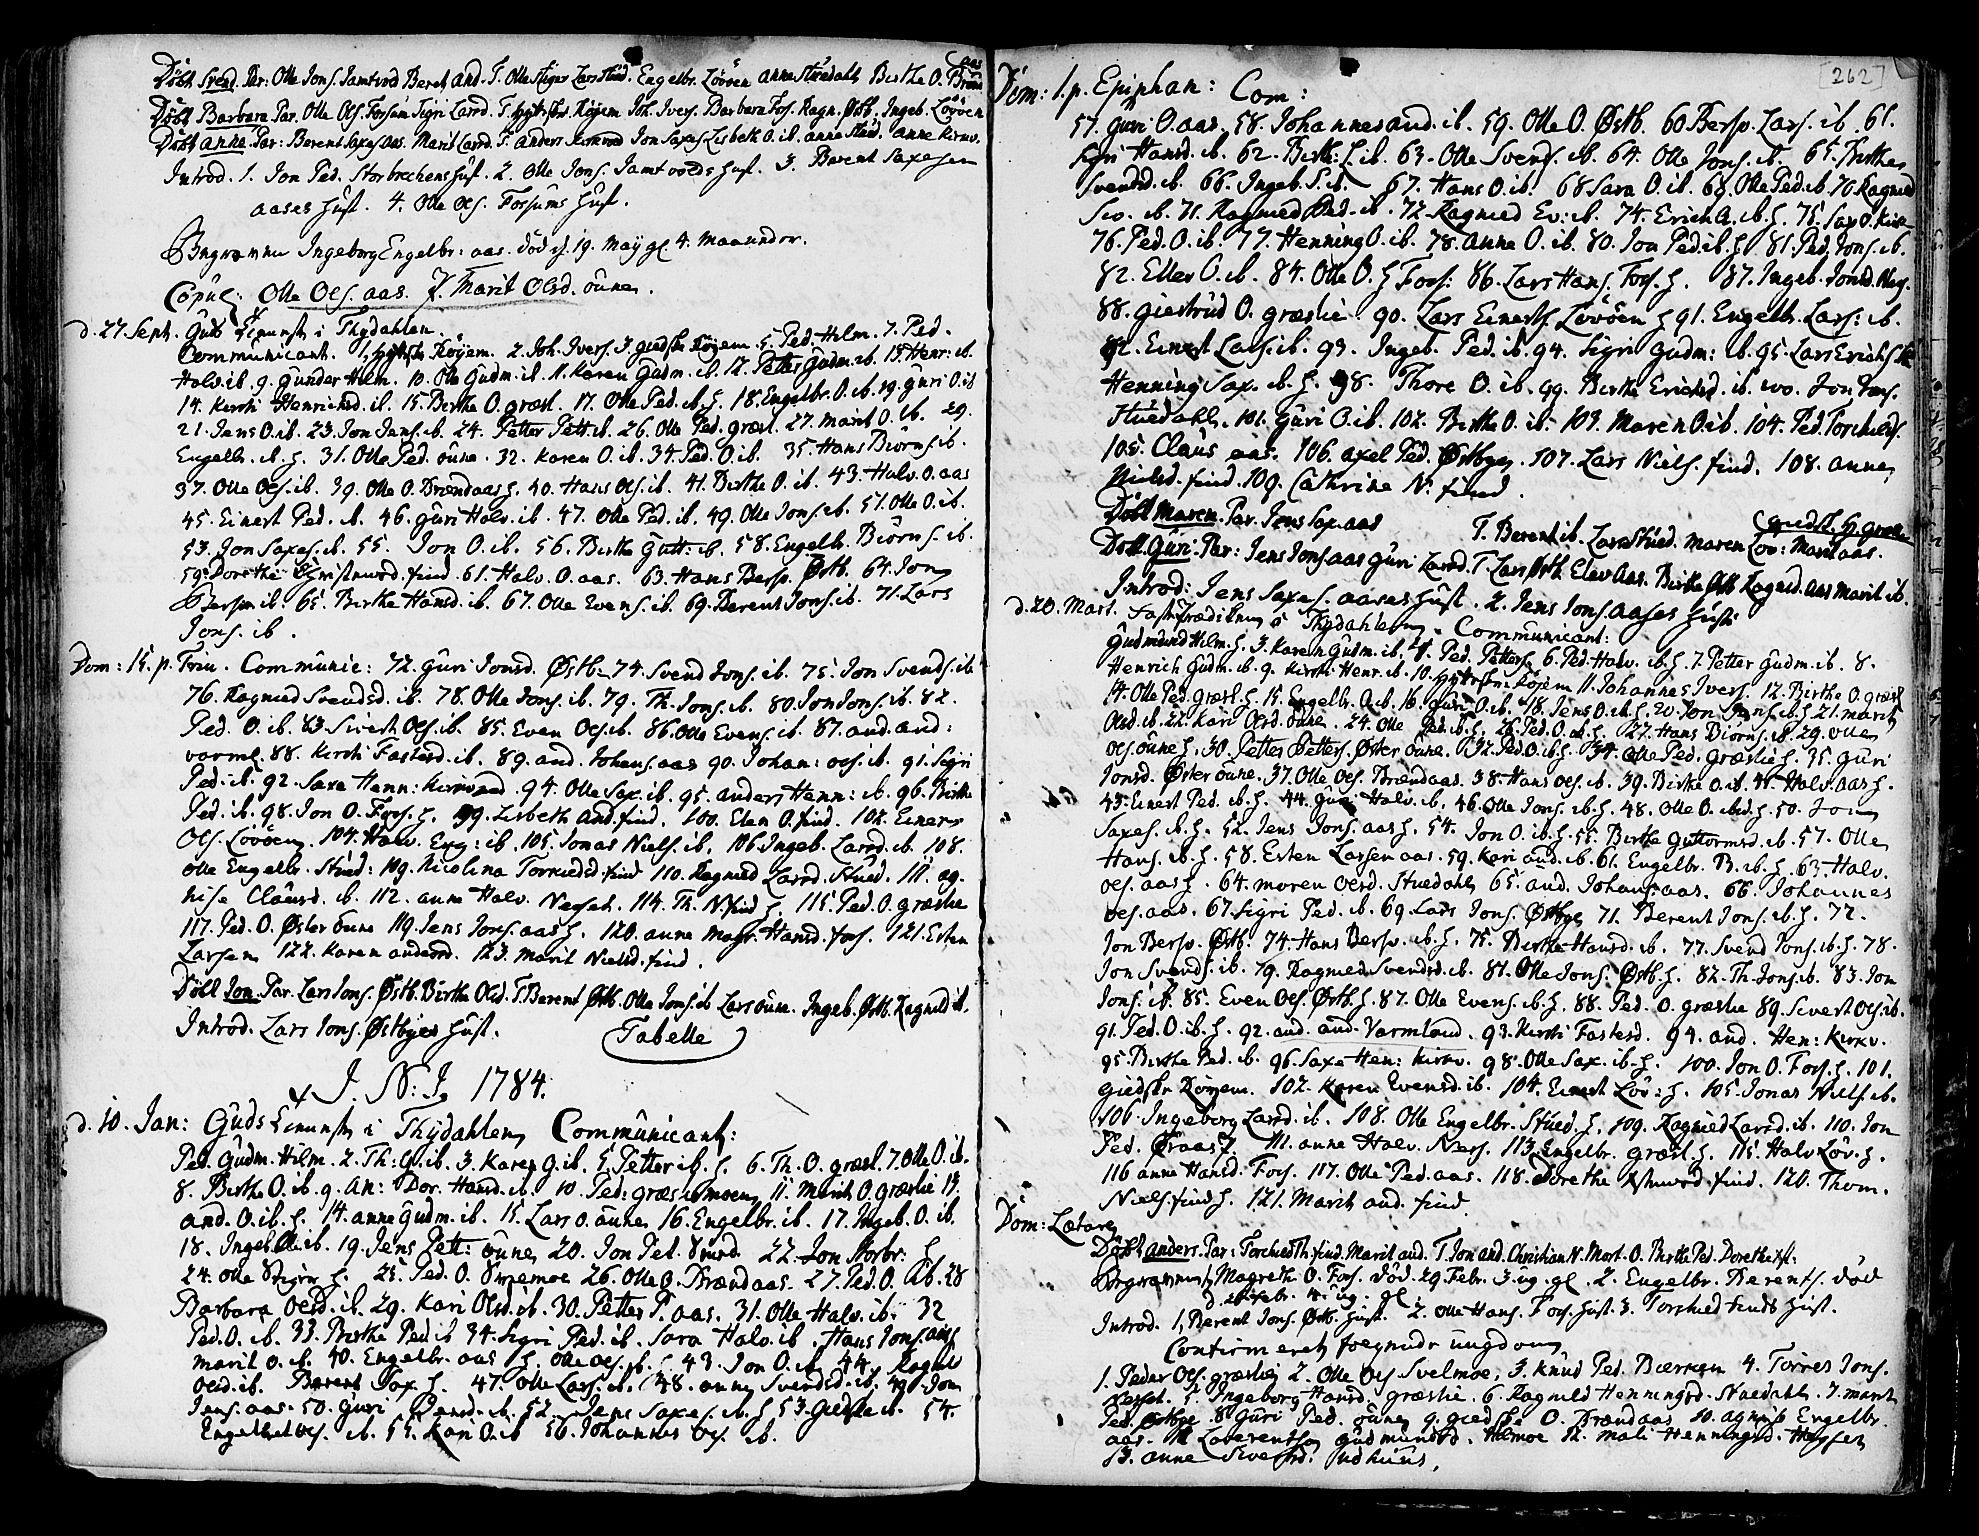 Döbt Svend. Par: Olle Jons. Jamtvod Beret And. T. Olle Lars Stued. Engelbr. Lövöen Anne Stuedahl Birthe O. Brænd
aas
Döbt Barbara Par. Olle Ols. Forsum Sigri Larsd. T. Köjem Joh. Ivers. Barbara Fors. Ragn. Østb. Ingeb. Lövöen
Döbt Anne Par: Berent Saxes. aas. Marit Larsd. T. Anders Kirkvod Jon Saxes. Lisbeth O. ib. Anne Stued. Anne Kirkv.
Introd. 1. Jon Ped. Storbrechens hust. 2. Olle Jons. Jamtvolds hust. 3. Berent Saxesen
aases hust. 4. Olle Ols. Forsums hust.
Begraven Ingeborg Engelbr: aas. död d. 19. Maÿ gl. 4. Maaneder.
Copul: Olle Ols. aas. & Marit Olsd. öune.
d. 27. Sept. Guds tienneste i Thydahlen.
Communicant. 1. Köjem. 2. Joh. Ivers. 3. giedske Köjem. 5. Ped. Hilm. 7. Ped.
Halv. ib. 9. Gunder Hilm. 10. Olle Gudm. ib. 11. Karen Gudm. ib. 12. Petter Gudm. ib. 13 Henr: ib.
14. Kirsti Henrichsd. ib. 15. Birthe O. græsl. 17. Olle Ped. ib. h. 18. Engelbr. O. ib. 19. Guri O. ib
21. Jens O. ib. 23. Jon Jens. ib. 24. Petter Pett. ib. 26. Olle Ped. græsl. 27. Marit O. ib. 29.
Engelbr. ib. h. 31. Olle Ped. öune. 32. Karen O. ib. 34. Ped. O. ib. 35. Hans Biörns. ib.
37. Olle Ols. ib. 39. Olle O. Brændaas h. 40. Hans Ols. ib. 41. Birthe O. ib. 43. Halv. O. aas
45. Einert Ped. ib. 46. Guri Halv. ib. 47. Olle Ped. ib. 49. Olle Jons. ib. 51. Olle O. ib.
53. Jon Saxes. ib. 55. Jon O. ib. 56. Birthe Gutt: ib. 58. Engelbr. Biörns. ib.
59. Dorethe Christensd. find. 61. Halv. O. aas. 63. Hans Bersv. Østb. 64. Jon
Bersv. ib. 65. Birthe Hansd. ib. 67. Olle Evens. ib. 69. Berent Jons. ib. 71. Lars
Jons. ib.
Dom: 15. p. Trin. Communic: 72. Guri Jonsd. Østb. 74. Svend Jons. ib. 75. Jon Svends. ib
76. Ragnild Svendsd. ib. 78. Olle Jons. ib. 79. Th. Jons. ib. 80. Jon Jons. ib. 82.
Ped. O. ib. 83. Sivert Ols. ib. 85. Even Ols. ib. 86. Olle Evens. ib. 87. And. And:
varml. 88. Kirsti Fastesd. ib. 89. And. Johans. aas 90. Johan: Ols. ib. 91. Sigri
Ped. ib. 92. Saxe Henn: Kirkvod. 94. Olle Sax. ib. 95. Anders Henn: ib. 96. Birthe
Ped. ib. 98. Jon O. Fors. h. 99. Lisbeth And. find. 100. Elen O. find. 102. Einer
Ols. Lövöen. 104. Halv. Eng: ib. 105. Jonas Niels. ib. 106. Ingeb. Larsd. ib. 108.
Olle Engelbr. Stued: 109. Nicolina Torkieldsd. find 110. Ragnild Larsd. Stued. 111. Ag-
nise Clausd. ib. 112. Anne Halv. Nesset. 114. Th. N. find h. 115. Ped. O. græslie
117. Ped. O. Øster öune 119. Jens Jons. aas h. 120. Anne Magr. Hansd. fors. 121. Esten
Larsen 122. Karen Andersd. 123. Marit Nielsd. find.
Döbt Jon. Par. Lars Jons. Østb. Birthe Olsd. T. Berent Østb. Olle Jons. ib Lars öune. Ingeb. Østb. Ragnild ib.
Introd. Lars Jons. Østbyes hust.
Tabelle
J. N. J. 1784.
d. 10. Jan: Guds tienneste i Thydahlen Communicant:
Ped. Gudm. Hilm. 2. Th: G. ib. 3. Karen G. ib. 5. Petter ib. h. 6. Th. O. græsl. 7. Olle O. ib.
8. Birthe O. ib. 9. An: Dor. Hansd. ib. 10. Ped: græsliemoen 11. Marit O. græslie 13.
And. O. ib. h. 14. Anne Gudm. ib. 15. Lars O. öune 16. Engelbr. ib. 17. Ingeb. O. ib.
18. Ingeb. O. ib. 19. Jens Pett: öune 20. Jon Pet. 22. Jon Storbr: h
24. Olle h. 25. Ped. O. 26. Olle O. Brændaas. 27. Ped. O. ib. 28
Barbara Olsd. ib. 29. Kari Olsd. ib. 30. Petter P. aas. 31. Olle Halv. ib. 32
Ped. O. ib. 33. Birthe Ped. ib 34. Sigri Ped. ib. Sara Halv. ib. Hans Jons. aas
Marit O. ib. 40. Engelbr. aas h. Olle Ols. ib. h. 43. Jon O. ib. 44. Ragnild
Olsd. ib. Berent Sax. h. 47. Olle Lars. ib. 48. Anne Svendsd. ib. 49. Jon
Jens. aas. 50. Guri ib. 52. Jens Saxes. ib. h 53. Giedske ib. 54.
Engelbret Ols. ib. 55. Kari O. ib 56. Johannes Ols. ib.
[262]
Dom: 1. p. Epiphan: Com:
57. Guri O. aas. 58. Johannes And. ib. 59. Olle O. Østb. 60 Bersv. Lars. ib. 61.
Sigri Hansd. ib. 62. Birthe L. ib. 63. Olle Svends. ib. 64. Olle Jons. ib. 65. Birthe
Svendsd. ib. 66. Ingeb. S. ib. 67. Hans O. ib. 68 Sara O. ib. 68. Olle Ped. ib. 70 Ragnild
Siv. ib. 71. Ragnild Ped. ib. 72. Ragnild Ev: ib. 74. Erich A. ib. h. 75. Sax O. Kirk-
76. Ped. O. ib. 77. Henning O. ib. 78. Anne O. ib. 80. Jon Ped. ib. h 81. Ped. Jons. ib.
82. Ellen O. ib. 84. Olle O. h Fors: 86. Lars Hans. Fors. h. 87. Ingeb. Jonsd. Næs.
88. Giertrud O. græslie 90. Lars Einerts. Lövöen h 91. Engelb. Lars: ib.
92. Einert Lars. ib. 93. Ingeb. Ped. ib. 94. Sigri Gudm: ib. 95. Lars Erichs.
Henning Sax. ib. h. 98. Thore O. ib. 99. Birthe Erichsd. ib. 100. Jon Lars.
Stuedahl. 101. Guri O. ib. 102. Birthe O. ib. 103. Maren O. ib. 104. Ped. Torchields.
105. Claus aas. 106. Axel Ped. Østbye. 107. Lars Niels. find. 108. Anne
Nielsd. find. 109. Cathrine N. find.
Döbt Maren. Par. Jens Sax. aas T. Berent ib. Lars Stued. Maren Löv: Marit aas.
Döbt Guri. Par: Jens Jons. aas Guri Larsd. T. Lars Østb. Elev Aas. Birthe Østb Ragnild. aas Marit ib.
Introd: Jens Saxes. aases hust. 2. Jens Jons. aases hust:
d. 20. Mart. Fasteprædiken i Thydahlen. Communicant:
Gudmund Hilm. h. 3. Karen Gudm. ib. 4. Ped. Petters. 6. Ped. Halv. ib. h. 7. Petter Gudm. ib. 8.
Henrich Gudm. ib. 9. Kirsti Henr. ib. 10. Köjem 11. Johannes Ivers. 12. Birthe O. græsl
14. Olle Ped. græsl. h. 15. Engelbr. O. ib. 16. Guri O. ib. 18. Jens O. ib. h. 20. Jon Jens. ib. h. 21. Marit
Olsd. ib. 22. Kari Olsd. öune. 24. Olle Ped. ib. h. 26. Ped. O. ib. h. 27. Hans Biörns. ib. 29. Olle
Ols. öune h. 30. Petter Petters. Øster öune. 32. Ped. O. ib. h. 34. Olle Ped. græslie h. 35. Guri
Jonsd. Øster öune. 37. Olle Ols. Brændaas. 38. Hans Ols. ib. 39. Birthe O. ib. 41. Halv. aas h.
43. Einert Ped. ib. h. 44. Guri Halv. ib. 46. Olle Jons. ib. h. 48. Olle O. ibid. h. 50. Jon
Saxes. ib. h. 52. Jens Jons. aas h. 54. Jon O. ib. h. 55. Birthe Guttormsd. ib. 57. Olle
Hans. ib. h. 58. Esten Larsen aas. 59. Kari And. ib. 61. Engelbr. B. ib. h. 63. Halv.
Ols. aas h. 64. Maren Olsd. Stuedahl 65. And. Johans. aas. 66. Johannes
Ols. aas. 67. Sigri Ped. ib. 69. Lars Jons. Østbye 71. Berent Jons. ib. h. 72.
Jon Bersv. Østb. 74. Hans Bersv. ib. h. 75. Birthe Hansd. ib. 77. Svend Jons. ib. h. 78.
Jon Svends. ib. 79. Ragnild Svendsd. ib. 81. Olle Jons. Østb. h. 82. Th. Jons. ib. 83. Jon
Jons. ib. 85. Even Ols. Østb. h. 87. Olle Evens. ib. h. 88. Ped. O. græslie 89. Sivert Ols. ib.
91. Ped. O. ib. h. 92. And. And. Varmland. 93. Kirsti Fastesd. 94. And. Hen: Kirkv.
95. Birthe Ped. ib. 96. Saxe Hen: Kirkv. 98. Olle Sax. ib. h. 100. Jon O. Fors. h. 101.
Giedske Köjem. 102. Karen Evensd. ib. 104. Einert Löv: h. 105. Jonas Niels. ib.
106. Ingeborg Larsd. ib. 108. Olle Engelbr. Stued. h. 109. Ragnild Larsd. ib. 110. Jon
Ped. 111. Anne Halv. Ness. 113. Engelbr. græsl. h. 115. Halv. Löv. h.
116 Anne Hansd. Fors. 117. Olle Ped. aas. 118. Dorethe find. 120. Thom.
Niels. find h. 121. Marit And. find.
Dom: Lætare
Döbt Anders. Par: Torchild Th. find. Marit And. T. Jon And. Christian N. Mort. O. Birthe Ped. Dorethe
Begraven 1. Magreth O. Fors. död. 29. Febr. 3 ug. gl. 2. Engelbr. Berents. död
d. Febr. 4. ug. gl.
Introd. 1, Berent Jons. Østb. hust. 2. Olle Hans. Fors. hust. 3. Torchild finds hust.
Confirmeret fölgende ungdom
1. Peder Ols. græslie 2. Olle Ols Svelmoe, 3. Knud Ped. Bierkem 4. Torres Jons.
Nesset. 5. Ingeborg Hansd. græslie. 6. Ragnild Henningsd. Stuedahl. 7. Marit
Ped. Østbye 8. Guri Ped. öune 9. Giedske O. Brændaas 10. Agnis Engelbr.
aas. 11 Gudmundsd. Hilmoe 12. Mali Henningsd.
13. Anne Sivertsd.